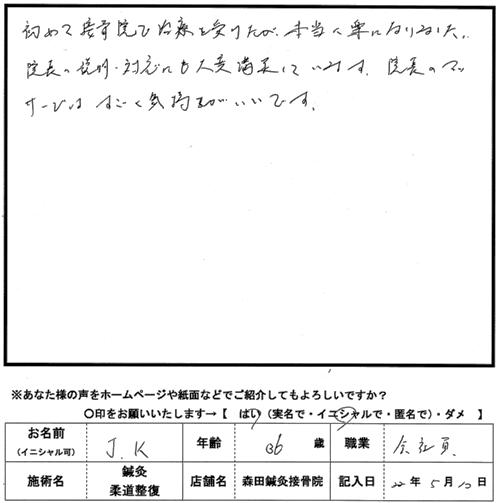 初めて接骨院で治療を受けたが、本当に楽になりました。
院長の説明・対応にも大変満足しています。院長のマッ
サージはすごく気持ちがいいです。
※あなた様の声をホームページや紙面などでご紹介してもよろしいですか？
〇印をお願いいたします→【 はい（実名で・イニシャルで・匿名で）・ダメ 】
お名前（イニシャル可） J.K 年齢 36 歳 職業 会社員
施術名 鍼灸 柔道整復 店舗名 森田鍼灸接骨院 記入日 22年 5月 10日